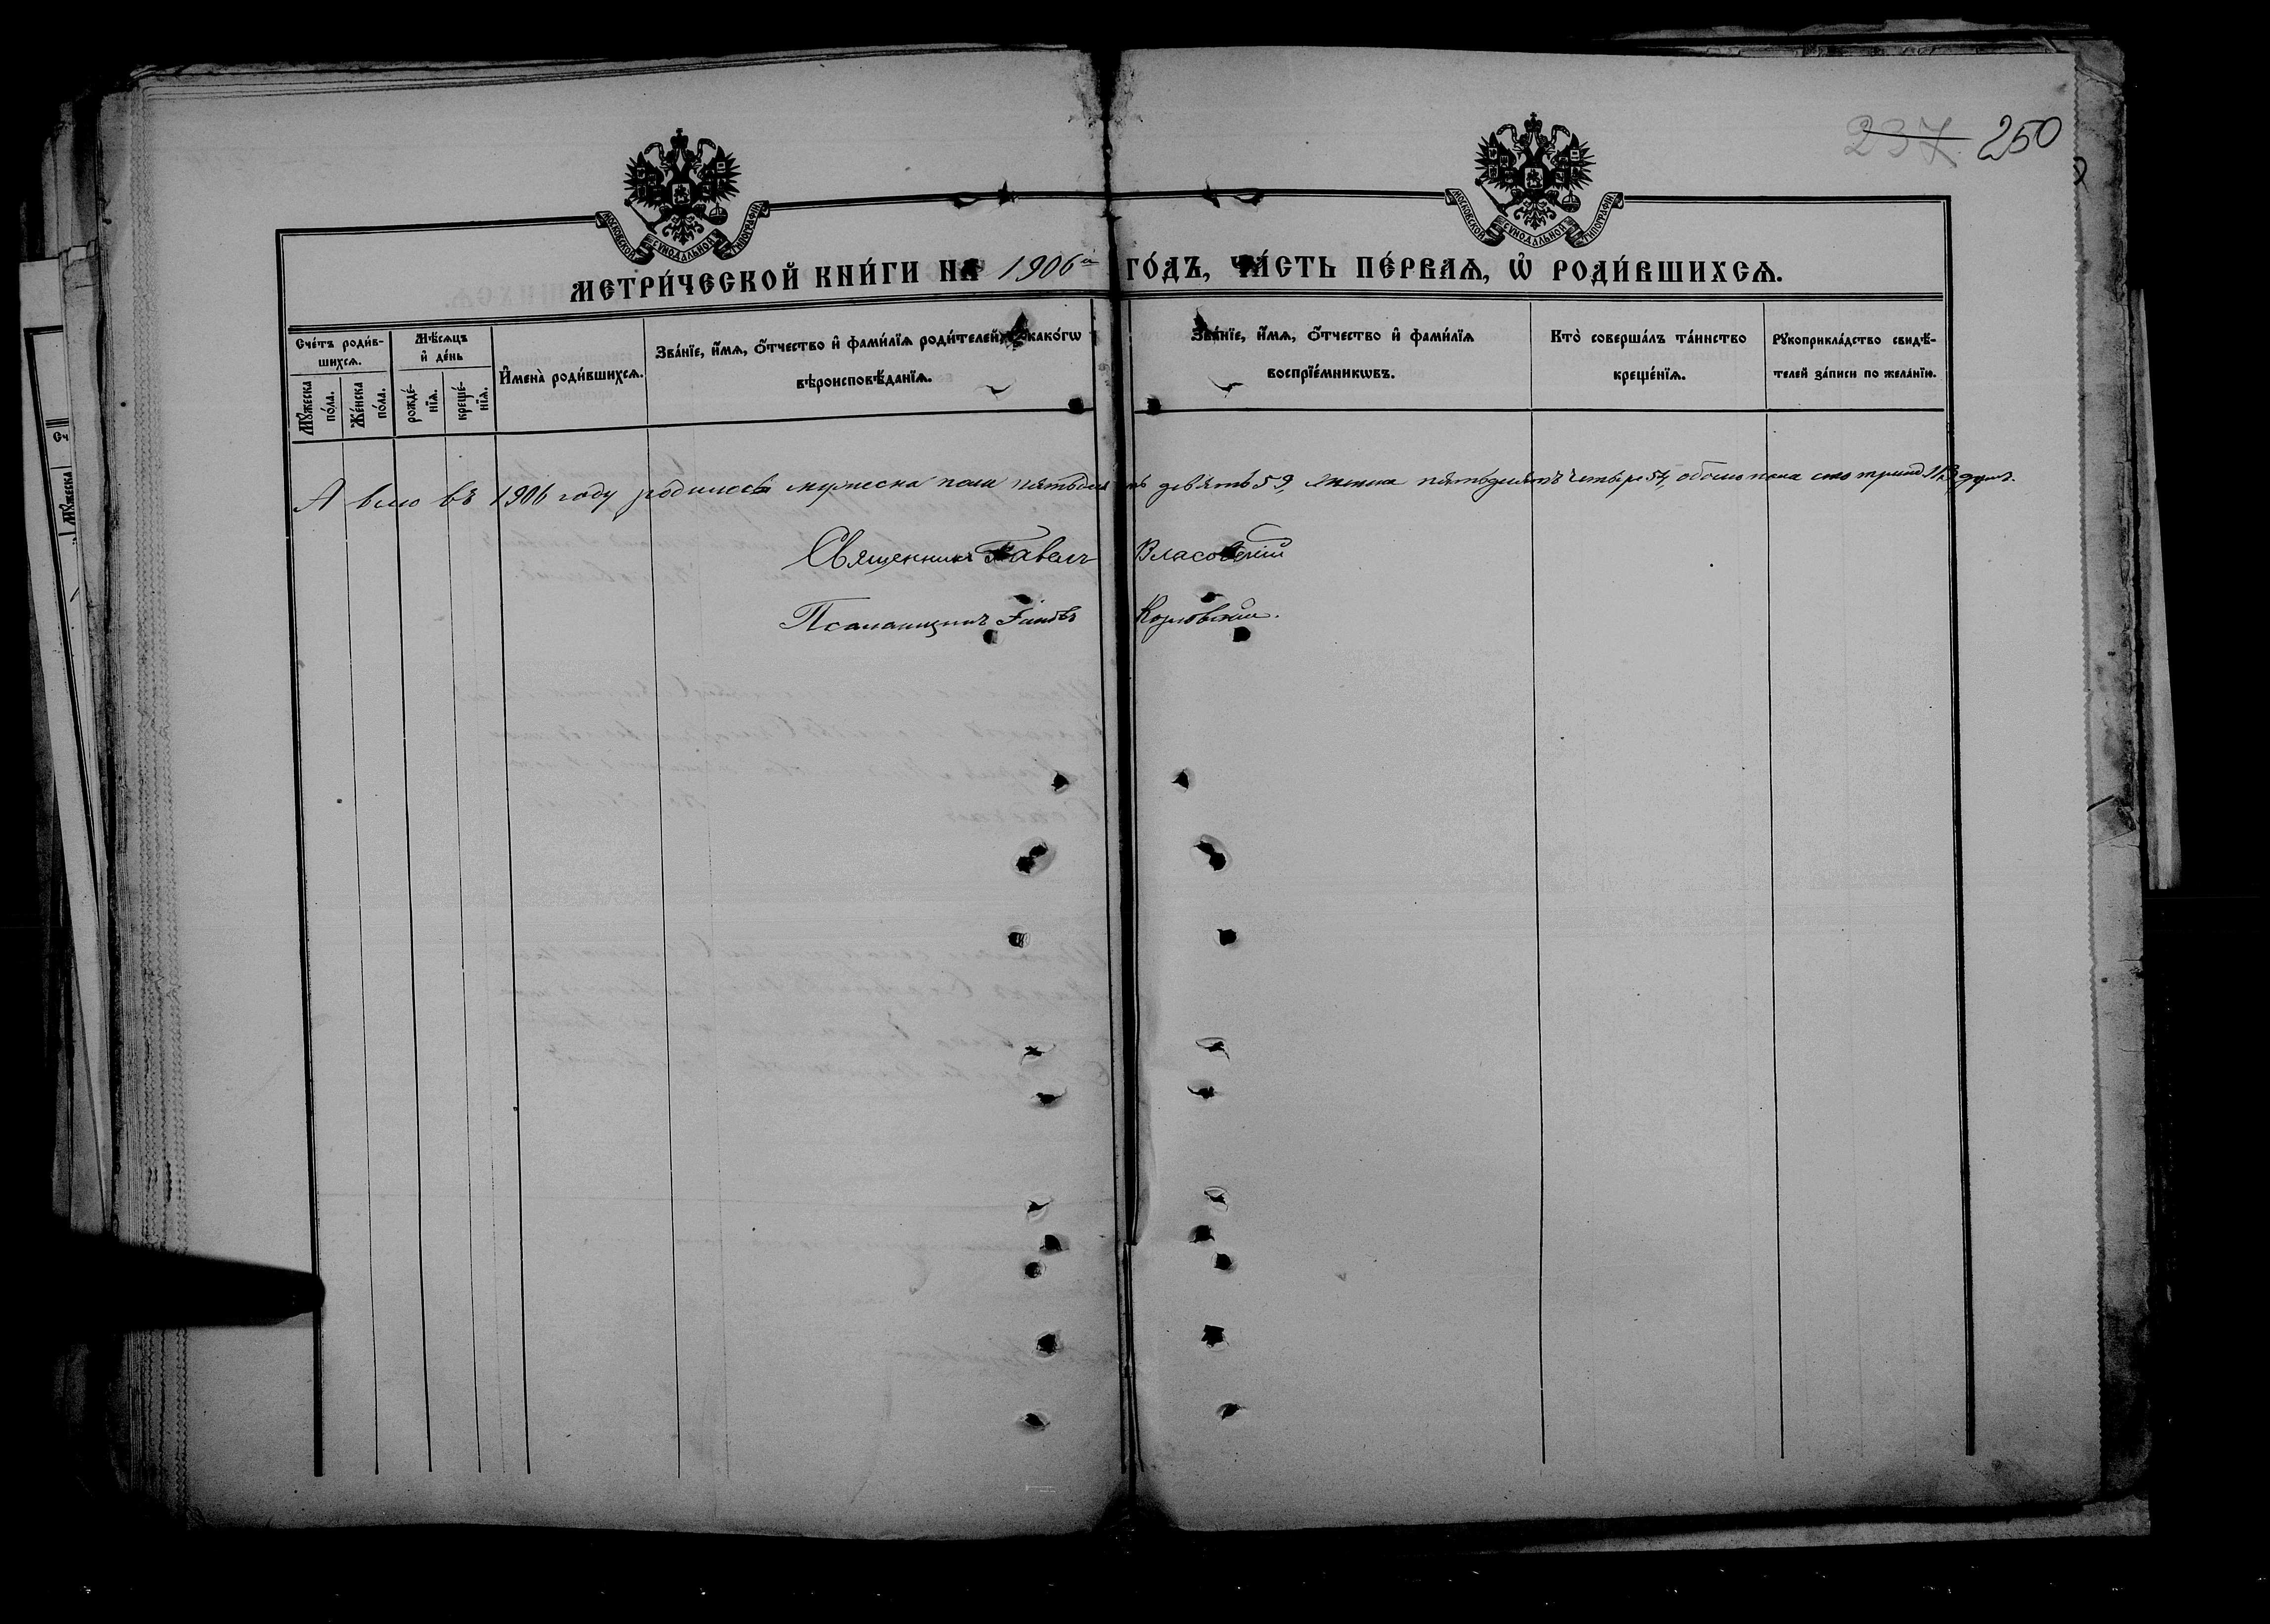 237. 250
МОСКОВСКОЙ СѴНОДАЛЬНОЙ ТИПОГРАФІИ
МОСКОВСКОЙ СѴНОДАЛЬНОЙ ТИПОГРАФІИ
МЕТРИ́ЧЕСКОЙ КНИ́ГИ НА 1906й ГО́ДЪ, ЧА́СТЬ ПЕ́РВАѦ, Ѡ҆ РОДИ́ВШИХСѦ.
Сче́тъ роди́вшихсѧ.
Мꙋ́жеска по́ла.
Же́нска по́ла.
Мѣ́сѧцъ и҆ де́нь
рожде́нїѧ.
креще́нїѧ.
И҆мена̀ роди́вшихсѧ.
Зва́нїе, и҆́мѧ, ѻ҆́тчество и҆ фами́лїѧ роди́телей, и҆ како́гѡ вѣроисповѣ́данїѧ.
Зва́нїе, и҆́мѧ, ѻ҆́тчество и҆ фами́лїѧ воспрїе́мникѡвъ.
Кто̀ соверша́лъ та́инство креще́нїѧ.
Рꙋкоприкла́дство свидѣ́телей за́писи по жела́нїю.
А всего въ 1906 году родилось мужеска пола пятьдесятъ девять 59, женска пятьдесятъ четыре 54, обоего пола сто 113 душъ.
Священникъ Павелъ Власовскій
Псаломщикъ Козловскій.
Сч
Мꙋ́жеска